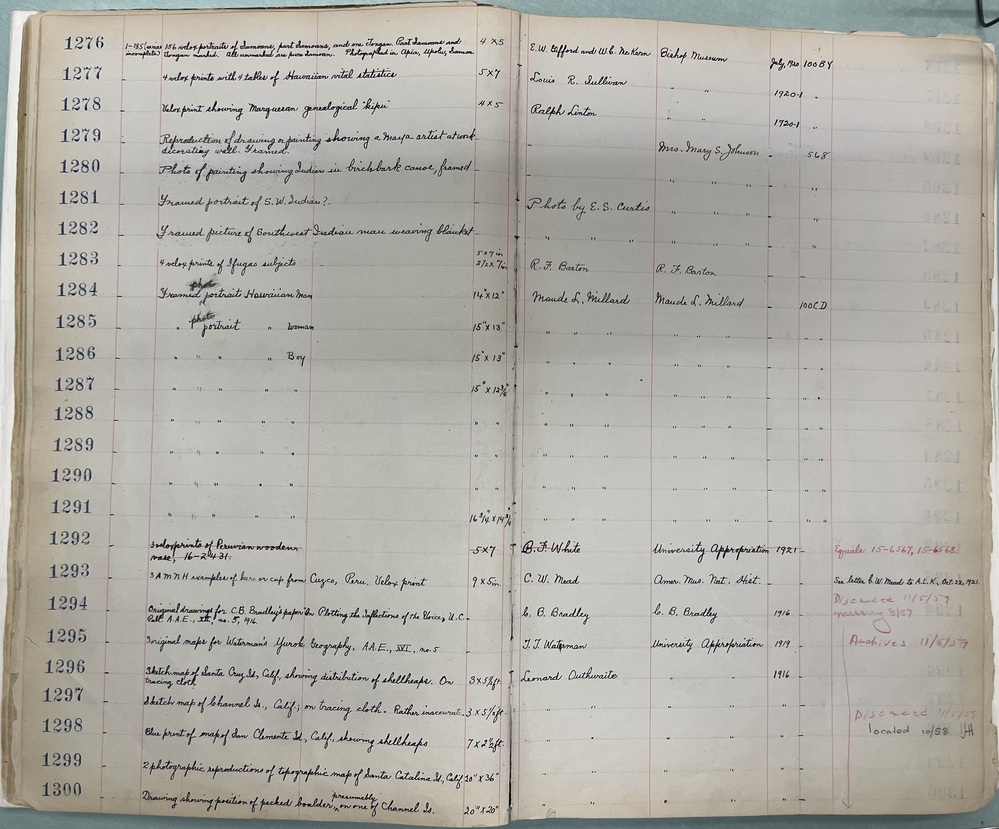 1276 1-155 (series 156 velox portraits of Samoans, part Samoans, and one Tongan. Part Samoans and 4 x 5 E.W. Gifford and W.C. McKern Bishop Museum July, 1920 100 BY
incomplete) Tongan marked. All unmarked are pure Samoan. Photographed in Apia, Upolu, Samoa
1277 4 velox prints with 4 tables of Hawaiian vital statistics 5 x 7 Louis R. Sullivan " " 1920-1 "
1278 Velox print showing Marquesan genealogical 'kipu' 4 x 5 Ralph Linton " " 1920-1 "
1279 Reproduction of drawing or painting showing a Maya artist at work Mrs. Mary S. Johnson 568
decorating wall. Framed.
1280 Photo of painting showing Indian in birchbark canoe, framed " " " "
1281 Framed portrait of S.W. Indian? Photo by E.S. Curtis " " " "
1282 Framed picture of Southwest Indian man weaving blanket " " " " " " "
1283 4 velox prints of Ifugao subjects 5 x 7 in R.F. Barton R.F. Barton
2 1/2 x 7 in
1284 Framed photo portraits Hawaiian Man 14" x 12" Maude L. Millard Maude L. Millard 100CD
1285 " photo portrait " Woman 15" x 13" " " " " " " "
1286 " " " Boy 15" x 13" " " " " " " "
1287 " " " " 15" x 12 3/4" " " " " " " "
1288 " " " " " " " " " " " " "
1289 " " " " " " " " " " " " "
1290 " " " " " " " " " " " " "
1291 " " " " 16 3/4" x 14 3/4" " " " " " " "
1292 3 velox prints of Peruvian wooden 5 x 7 B.F. White University Appropriation 1921 Equals 15-6567, 15-6568
vase, 16-2431.
1293 3 A M N H examples of bars or cup from Cuzco, Peru. Velox print 9 x 5 in C.W. Mead Amer. Mus. Nat. Hist. See letter C.W. Mead to A.L.K., Oct. 22, 1921.
1294 Original drawings for C.B. Bradley's paper On Plotting the Inflections of the Voice, U.C. C.B. Bradley C.B. Bradley 1916 Discarded 11/5/59
Publ. A.A.E., XII, no. 5, 1916. missing 8/57
1295 3 original maps for Waterman's Yurok Geography, A.A.E., XVI, no. 5 T.T. Waterman University Appropriation 1919 Archives 11/5/59
1296 Sketch map of Santa Cruz Id., Calif., showing distribution of shellheaps. On 3 x 5 1/2 ft. Leonard Outhwaite 1916
tracing cloth
1297 Sketch map of Channel Is., Calif.; on tracing cloth. Rather inaccurate. 3 x 5 1/2 ft. " " " "
Discarded 11/5/59
1298 Blue print of map of San Clemente Id., Calif. showing shellheaps 7 x 2 1/2 ft. " " " " located 10/58
1299 2 photographic reproductions of topographic map of Santa Catalina Id., Calif. 20" x 36" " " " "
1300 Drawing showing position of pecked boulder, presumably on one of Channel Is. 20" x 20" " " " "